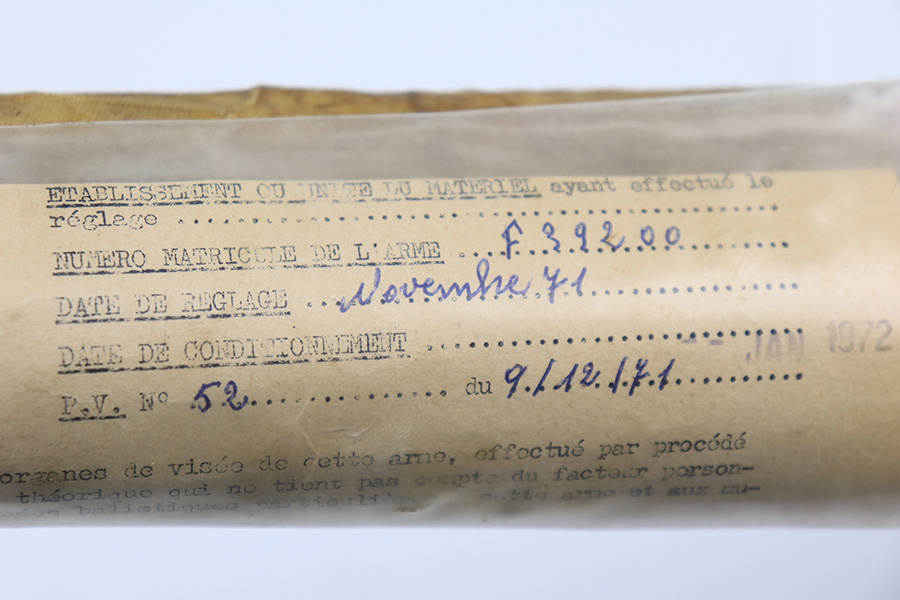 ETABLISSEMENT OU UNITE DU MATERIEL ayant effectué le
réglage ........................................
NUMERO MATRICULE DE L'ARME ...F 392 00..........
DATE DE REGLAGE ...Novembre 71..................
DATE DE CONDITIONNIMENT ........................ -- JAN 1972
P.V. N° 52.............. du 9/12/71..........
organes de visée de cette arme, effectué par procédé
théorique qui ne tient pas compte du facteur person-
balistiques cette arme et aux mu-